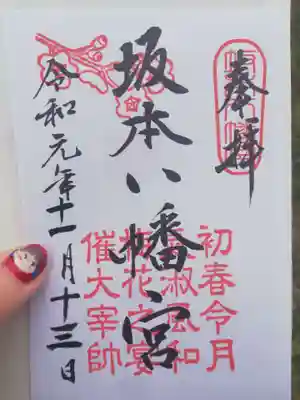 奉拝
坂本八幡宮
令和元年十一月十三日
初春令月
氣淑風和
梅花之宴
催大宰帥